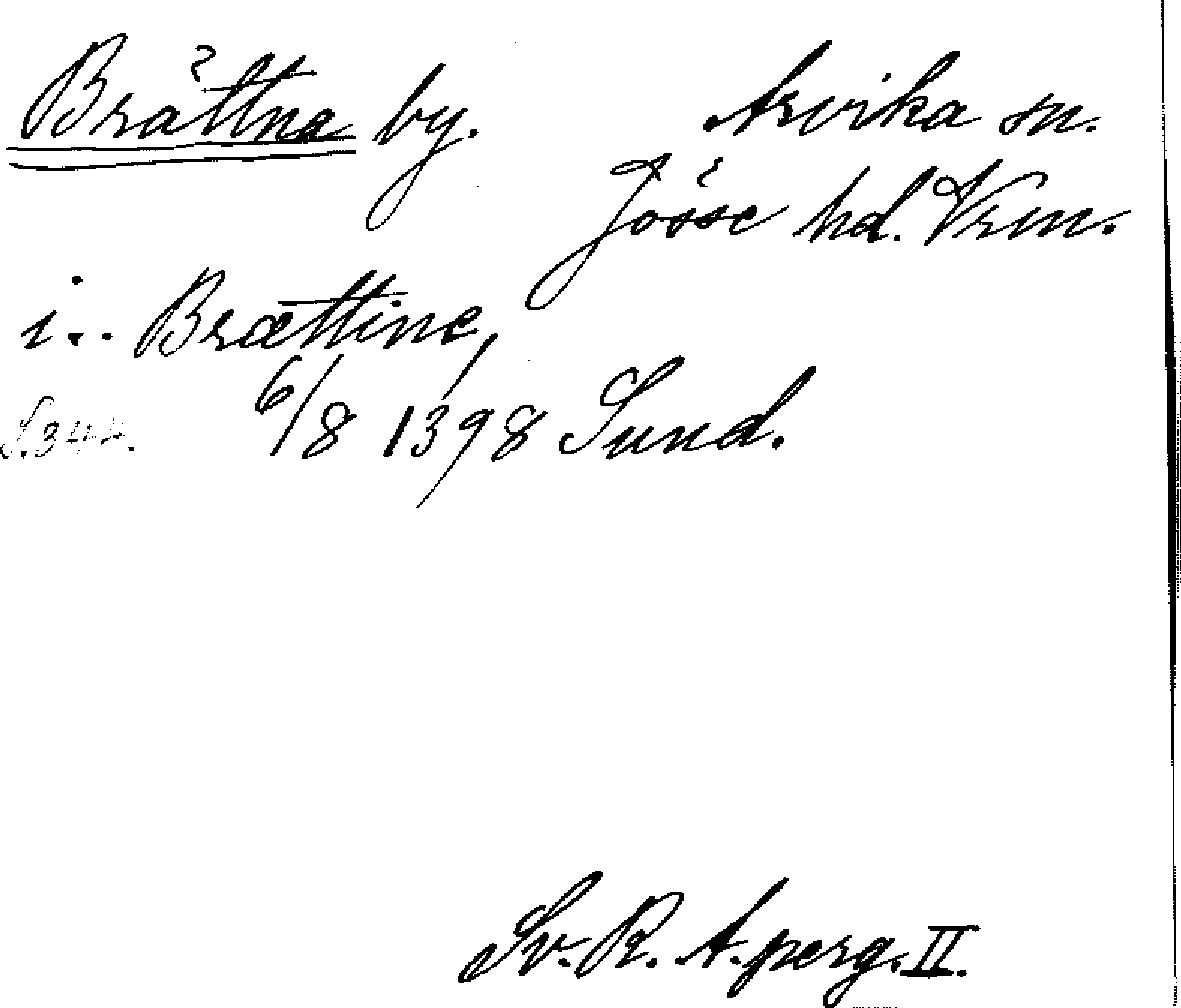 Brättna by. Arvika sn.
Jösse hd. Vrm.
i.. Brættine,
S. 344. 6/8 1398 Sund.
Sv. R. A. perg. II.